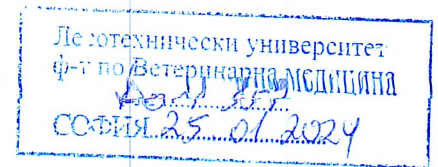 Лесотехнически университет
ф-т по Ветеринарна МЕДИЦИНА
СОФИЯ 25.01.2024